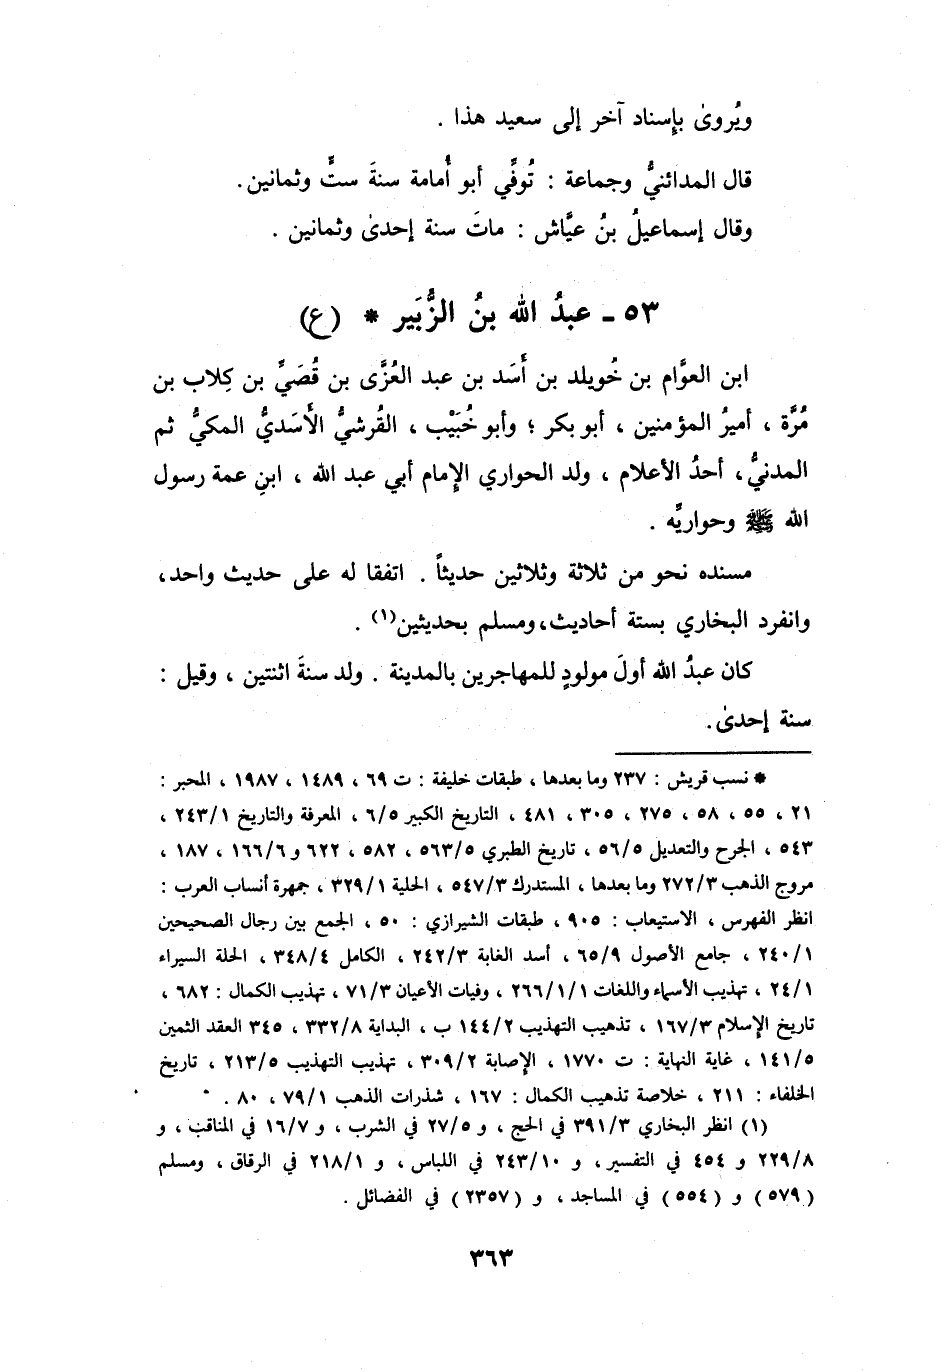 ويُروىٰ بإسناد آخر إلى سعيد هذا .
قال المدائنيُّ وجماعة : تُوفِّي أبو أُمامة سنةَ ستٍّ وثمانين.
وقال إسماعيلُ بنُ عيَّاش : ماتَ سنة إحدىٰ وثمانين .
٥٣ ـ عبدُ الله بنُ الزُّبَير * (ع)
ابن العوَّام بن خُويلد بن أَسَد بن عبد العُزَّى بن قُصَيِّ بن كِلاب بن
مُرَّة ، أميرُ المؤمنين ، أبو بكر ؛ وأبو خُبَيْب ، القُرشيُّ الأَسَديُّ المكيُّ ثم
المدنيُّ، أحدُ الأعلام ، ولد الحواري الإمام أبي عبد الله ، ابنِ عمة رسول
الله ﷺ وحواريِّه .
مسنده نحو من ثلاثة وثلاثين حديثاً . اتفقا له على حديث واحد،
وانفرد البخاري بستة أحاديث، ومسلم بحديثين(١) .
كان عبدُ الله أولَ مولودٍ للمهاجرين بالمدينة . ولد سنةَ اثنتين ، وقيل :
سنة إحدىٰ.
* نسب قريش : ٢٣٧ وما بعدها ، طبقات خليفة : ت ٦٩ ، ١٤٨٩ ، ١٩٨٧ ، المحبر :
٢١ ، ٥٥ ، ٥٨ ، ٢٧٥ ، ٣٠٥ ، ٤٨١ ، التاريخ الكبير ٦/٥ ، المعرفة والتاريخ ٢٤٣/١ ،
٥٤٣ ، الجرح والتعديل ٥٦/٥ ، تاريخ الطبري ٥٦٣/٥ ، ٥٨٢ ، ٦٢٢ و ١٦٦/٦ ، ١٨٧ ،
مروج الذهب ٢٧٢/٣ وما بعدها ، المستدرك ٥٤٧/٣ ، الحلية ٣٢٩/١ ، جمهرة أنساب العرب :
انظر الفهرس ، الاستيعاب : ٩٠٥ ، طبقات الشيرازي : ٥٠ ، الجمع بين رجال الصحيحين
٢٤٠/١ ، جامع الأصول ٦٥/٩ ، أسد الغابة ٢٤٢/٣ ، الكامل ٣٤٨/٤ ، الحلة السيراء
٢٤/١ ، تهذيب الأسماء واللغات ٢٦٦/١/١ ، وفيات الأعيان ٧١/٣ ، تهذيب الكمال : ٦٨٢ ،
تاريخ الإسلام ١٦٧/٣ ، تذهيب التهذيب ١٤٤/٢ ب ، البداية ٣٣٢/٨ ، ٣٤٥ العقد الثمين
١٤١/٥ ، غاية النهاية : ت ١٧٧٠ ، الإصابة ٣٠٩/٢ ، تهذيب التهذيب ٢١٣/٥ ، تاريخ
الخلفاء : ٢١١ ، خلاصة تذهيب الكمال : ١٦٧ ، شذرات الذهب ٧٩/١ ، ٨٠ .
(١) انظر البخاري ٣٩١/٣ في الحج ، و ٢٧/٥ في الشرب ، و ١٦/٧ في المناقب ، و
٢٢٩/٨ و ٤٥٤ في التفسير، و ٢٤٣/١٠ في اللباس ، و ٢١٨/١ في الرقاق ، ومسلم
(٥٧٩) و (٥٥٤) في المساجد ، و (٢٣٥٧) في الفضائل .
٣٦٣